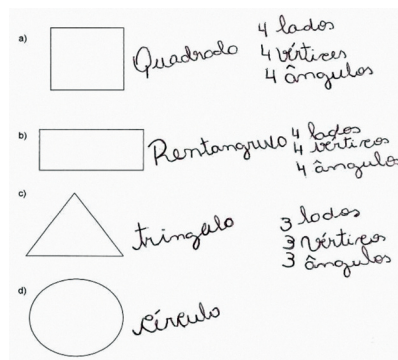 a) Quadrado 4 lados
4 vértices
4 ângulos
b) Rentangruvo 4 lados
4 vértices
4 ângulos
c) tringulo 3 lados
3 vértices
3 ângulos
d) círculo